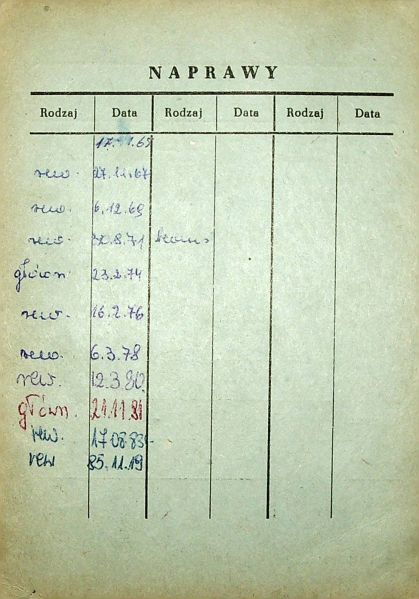 NAPRAWY
Rodzaj Data Rodzaj Data Rodzaj Data
rew. 27.11.67
rew. 6.12.69
rew. 30.8.71
główn 23.2.74
rew. 16.2.76
rew. 6.3.78
rew. 12.3.80
główn. 21.11.81
rew. 17 08 83
rew 85.11.19